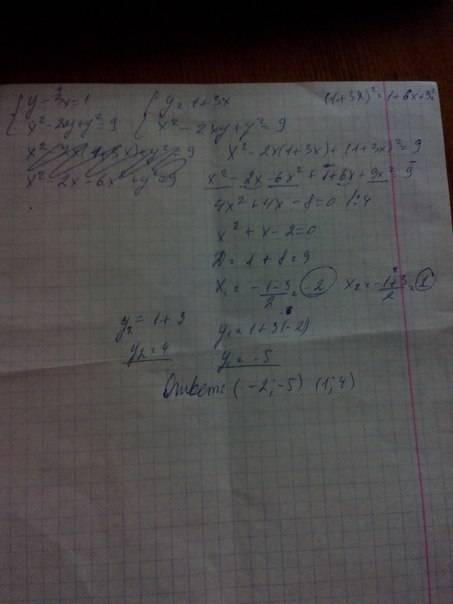 { y - 3x = 1
{ x² - 2xy + y² = 9
x² - 2x - 6x² + y² = 9
{ y = 1 + 3x
{ x² - 2xy + y² = 9
(1+3x)² = 1 + 6x + 9x²
x² - 2x(1+3x) + (1+3x)² = 9
x² - 2x - 6x² + 1 + 6x + 9x² = 9
4x² + 4x - 8 = 0 /:4
x² + x - 2 = 0
D = 1 + 8 = 9
x₁ = -1-3/2 = -2 x₂ = -1+3/2 = 1
y₂ = 1 + 3 y₁ = 1 + 3(-2)
y₂ = 4 y₁ = -5
Ответ: (-2;-5) (1;4)